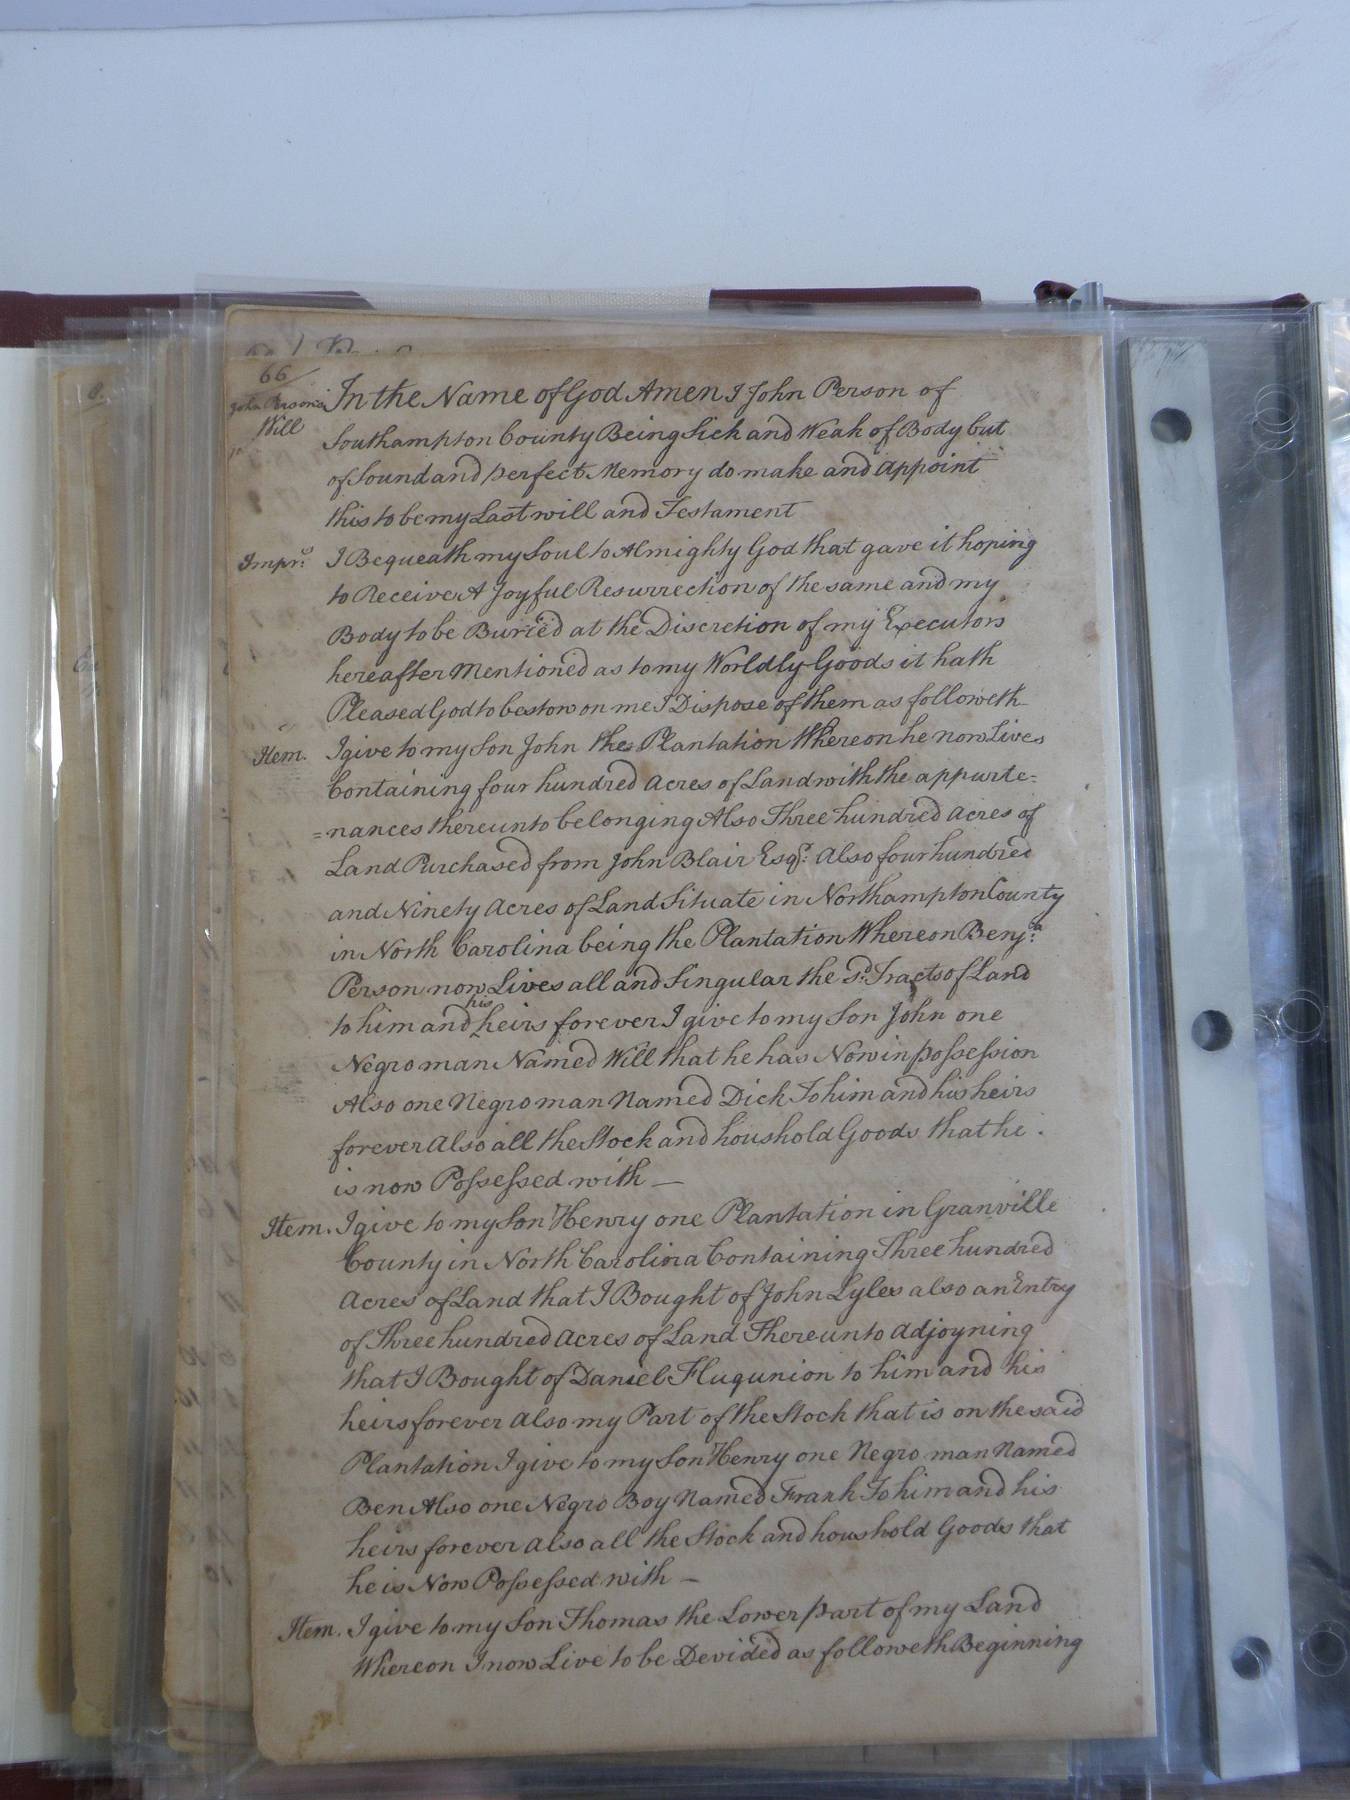 66
John Person's
Will
In the Name of God Amen I John Person of
Southampton County Being Sick and Weak of Body but
of Sound and perfect Memory do make and appoint
this to be my Last will and Testament
Impr.s I Bequeath my Soul to Almighty God that gave it hoping
to Receive A Joyful Resurrection of the same and my
Body to be Buried at the Discretion of my Executors
hereafter Mentioned as to my Worldly Goods it hath
Pleased God to bestow on me I Dispose of them as followeth
Item. I give to my Son John the Plantation Whereon he now Lives
Containing four hundred Acres of Land with the appurte=
=nances thereunto belonging Also Three hundred Acres of
Land Purchased from John Blair Esqr. Also four hundred
and Ninety Acres of Land Situate in Northampton County
in North Carolina being the Plantation Whereon Benja.
Person now Lives all and Singular the sd. Tracts of Land
to him and his heirs forever I give to my Son John one
Negro man Named Will that he has Now in possession
Also one Negro man Named Dick To him and his heirs
forever Also all the Stock and houshold Goods that he
is now Possessed with —
Item. I give to my Son Henry one Plantation in Granville
County in North Carolina Containing Three hundred
Acres of Land that I Bought of John Lyles also an Entry
of Three hundred Acres of Land Thereunto Adjoyning
that I Bought of Daniel Fluqunion to him and his
heirs forever Also my Part of the Stock that is on the said
Plantation I give to my Son Henry one Negro man Named
Ben Also one Negro Boy Named Frank To him and his
heirs forever Also all the Stock and houshold Goods that
he is Now Possessed with —
Item. I give to my Son Thomas the Lower part of my Land
Whereon I now Live to be Devided as followeth Beginning